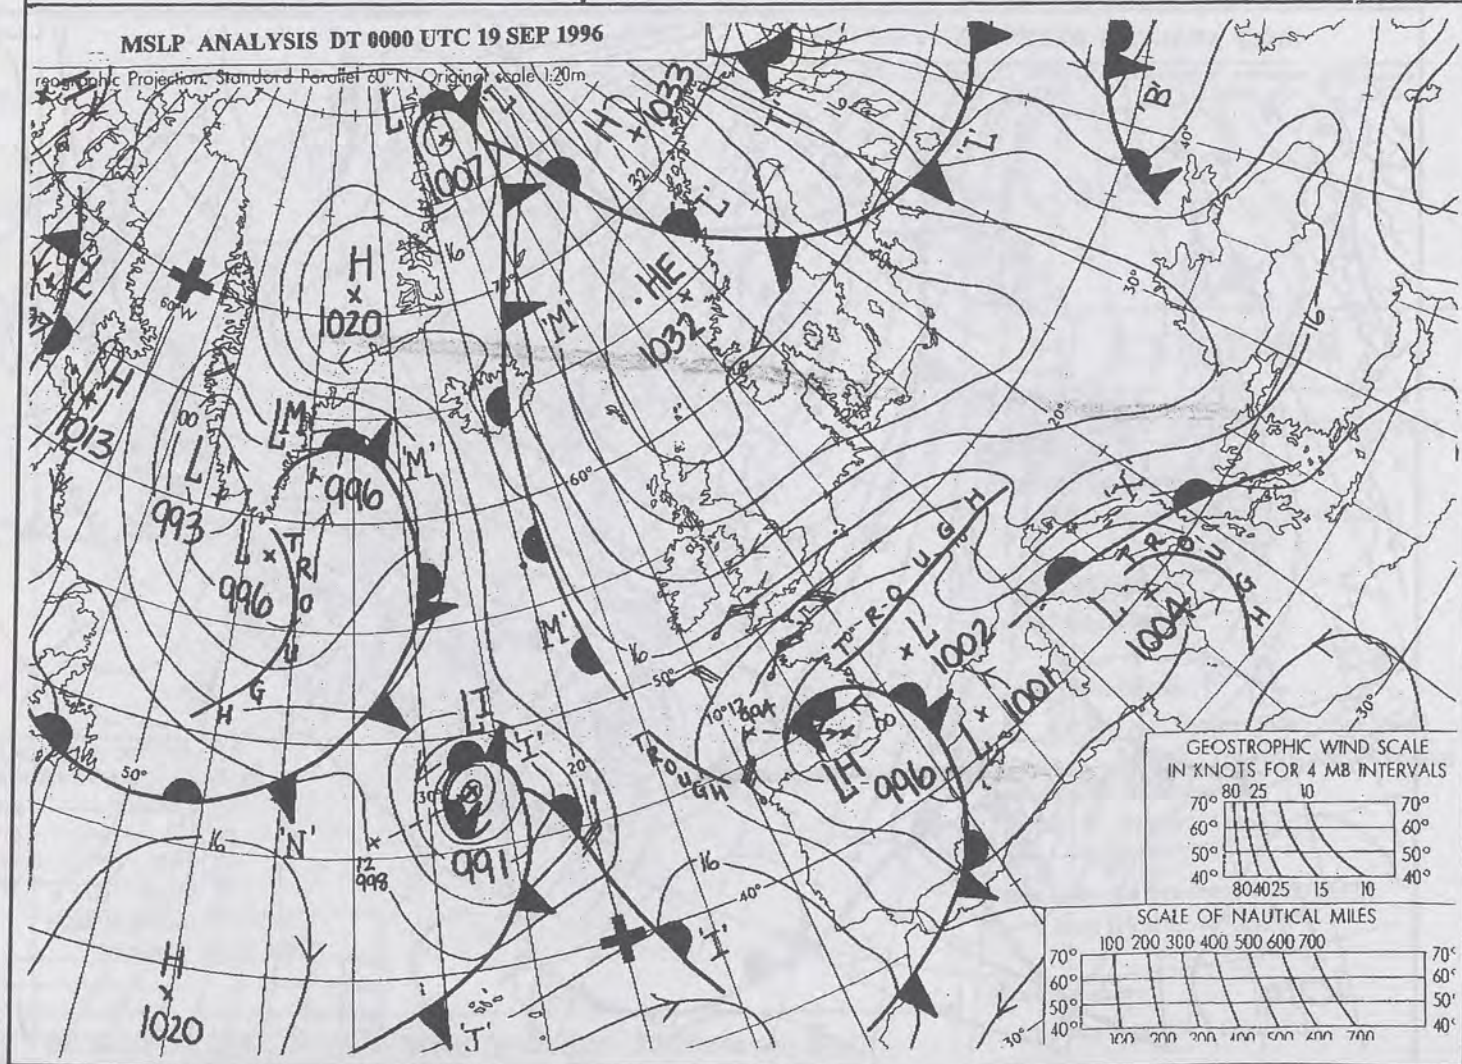 MSLP ANALYSIS DT 0000 UTC 19 SEP 1996
reographic Projection. Standard Parallel 60°N. Original scale 1:20m
L
1007
'L'
H
1033
32
'T'
'L'
'L'
'B'
40°
16
70°
H
1020
60°W
'M'
HE
1032
30°
16
H
1013
00
L
993
LM
996
'M'
60°
20°
L
996
TROUGH
TROUGH
TROUGH
L
1004
'M'
16
50°
10°
L
1002
L
1001
LI
'I'
30°
20°
991
12
998
TROUGH
12
00
LH
996
50°
'N'
16
16
40°
H
1020
'J'
'I'
0°
30°
30°
GEOSTROPHIC WIND SCALE
IN KNOTS FOR 4 MB INTERVALS
80 25 10
70° 70°
60° 60°
50° 50°
40° 40°
80 40 25 15 10
SCALE OF NAUTICAL MILES
100 200 300 400 500 600 700
70° 70°
60° 60°
50° 50°
40° 40°
100 200 300 400 500 600 700